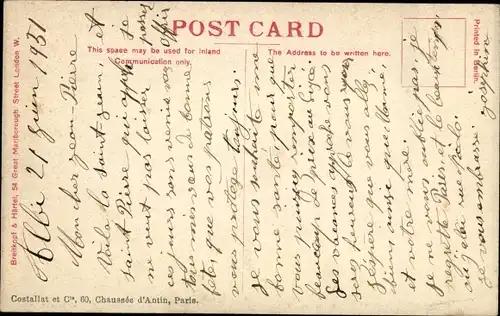 POST CARD
This space may be used for Inland
Communication only.
The Address to be written here.
Printed in Berlin.
Breitkopf & Härtel, 54 Great Marlborough Street London W.
Costallat et Cie, 60, Chaussée d'Antin, Paris.
Albi 21 juin 1931
Mon cher Jean-Pierre
Voila la saint Jean et
saint Pierre qui approche je
ne veut pas laisser passer
ces jours sans venir
tous vous de bonne
fête, que vos patrons
vous protège toujours.
je vous souhaite une
bonne santé, pour que
vous puissiez remporter
beaucoup de prix au lycée
les vacances approche vous
serez heureux
j'espère que vous allez
bien, ainsi que Mamé
et votre mère.
je ne vous oublie pas, je
regrette Paris et le bon temps
au
je vous embrasse. Josephine